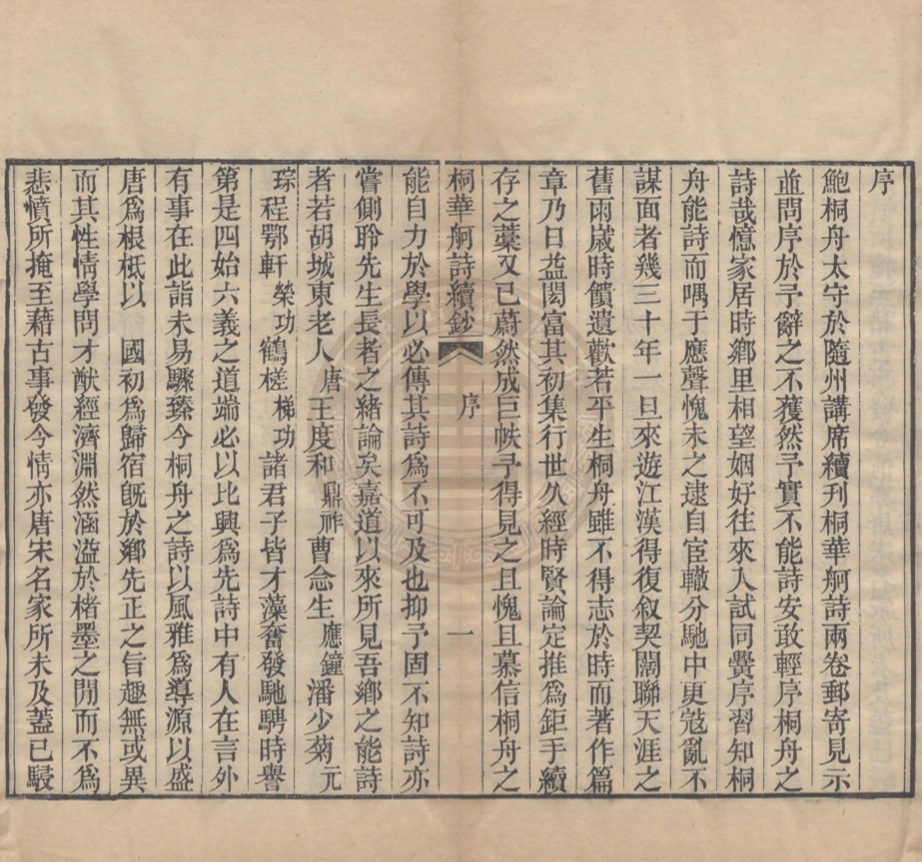 序
鮑桐舟太守於隨州講席續刊桐華舸詩兩卷郵寄見示
並問序於予辭之不獲然予實不能詩安敢輕序桐舟之
詩哉憶家居時鄉里相望姻好往來入試同黌序習知桐
舟能詩而喁于應聲愧未之逮自宦轍分馳中更寇亂不
謀面者幾三十年一旦來遊江漢得復叙契闊聯天涯之
舊雨歲時饋遺歡若平生桐舟雖不得志於時而著作篇
章乃日益閎富其初集行世久經時賢論定推爲鉅手續
存之藁又已蔚然成巨帙予得見之且愧且慕信桐舟之
桐華舸詩續鈔 序 一
能自力於學以必傳其詩爲不可及也抑予固不知詩亦
嘗側聆先生長者之緒論矣嘉道以來所見吾鄉之能詩
者若胡城東老人唐王度和鼎祚曹念生應鐘潘少菊元
琮程鄂軒榮功鶴槎梯功諸君子皆才藻奮發馳騁時譽
第是四始六義之道端必以比興爲先詩中有人在言外
有事在此詣未易驟臻今桐舟之詩以風雅爲導源以盛
唐爲根柢以 國初爲歸宿旣於鄉先正之旨趣無或異
而其性情學問才猷經濟淵然涵溢於楮墨之閒而不爲
悲憤所掩至藉古事發今情亦唐宋名家所未及蓋已駸